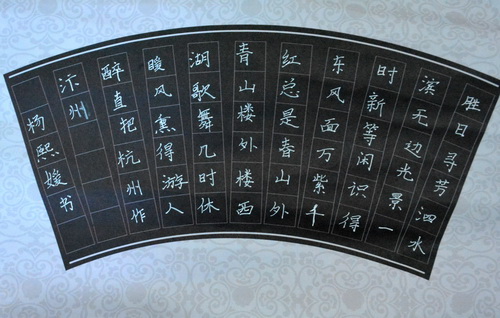 胜日寻芳泗水
滨无边光景一
时新等闲识得
东风面万紫千
红总是春山外
青山楼外楼西
湖歌舞几时休
暖风熏得游人
醉直把杭州作
汴州
杨熙媛书